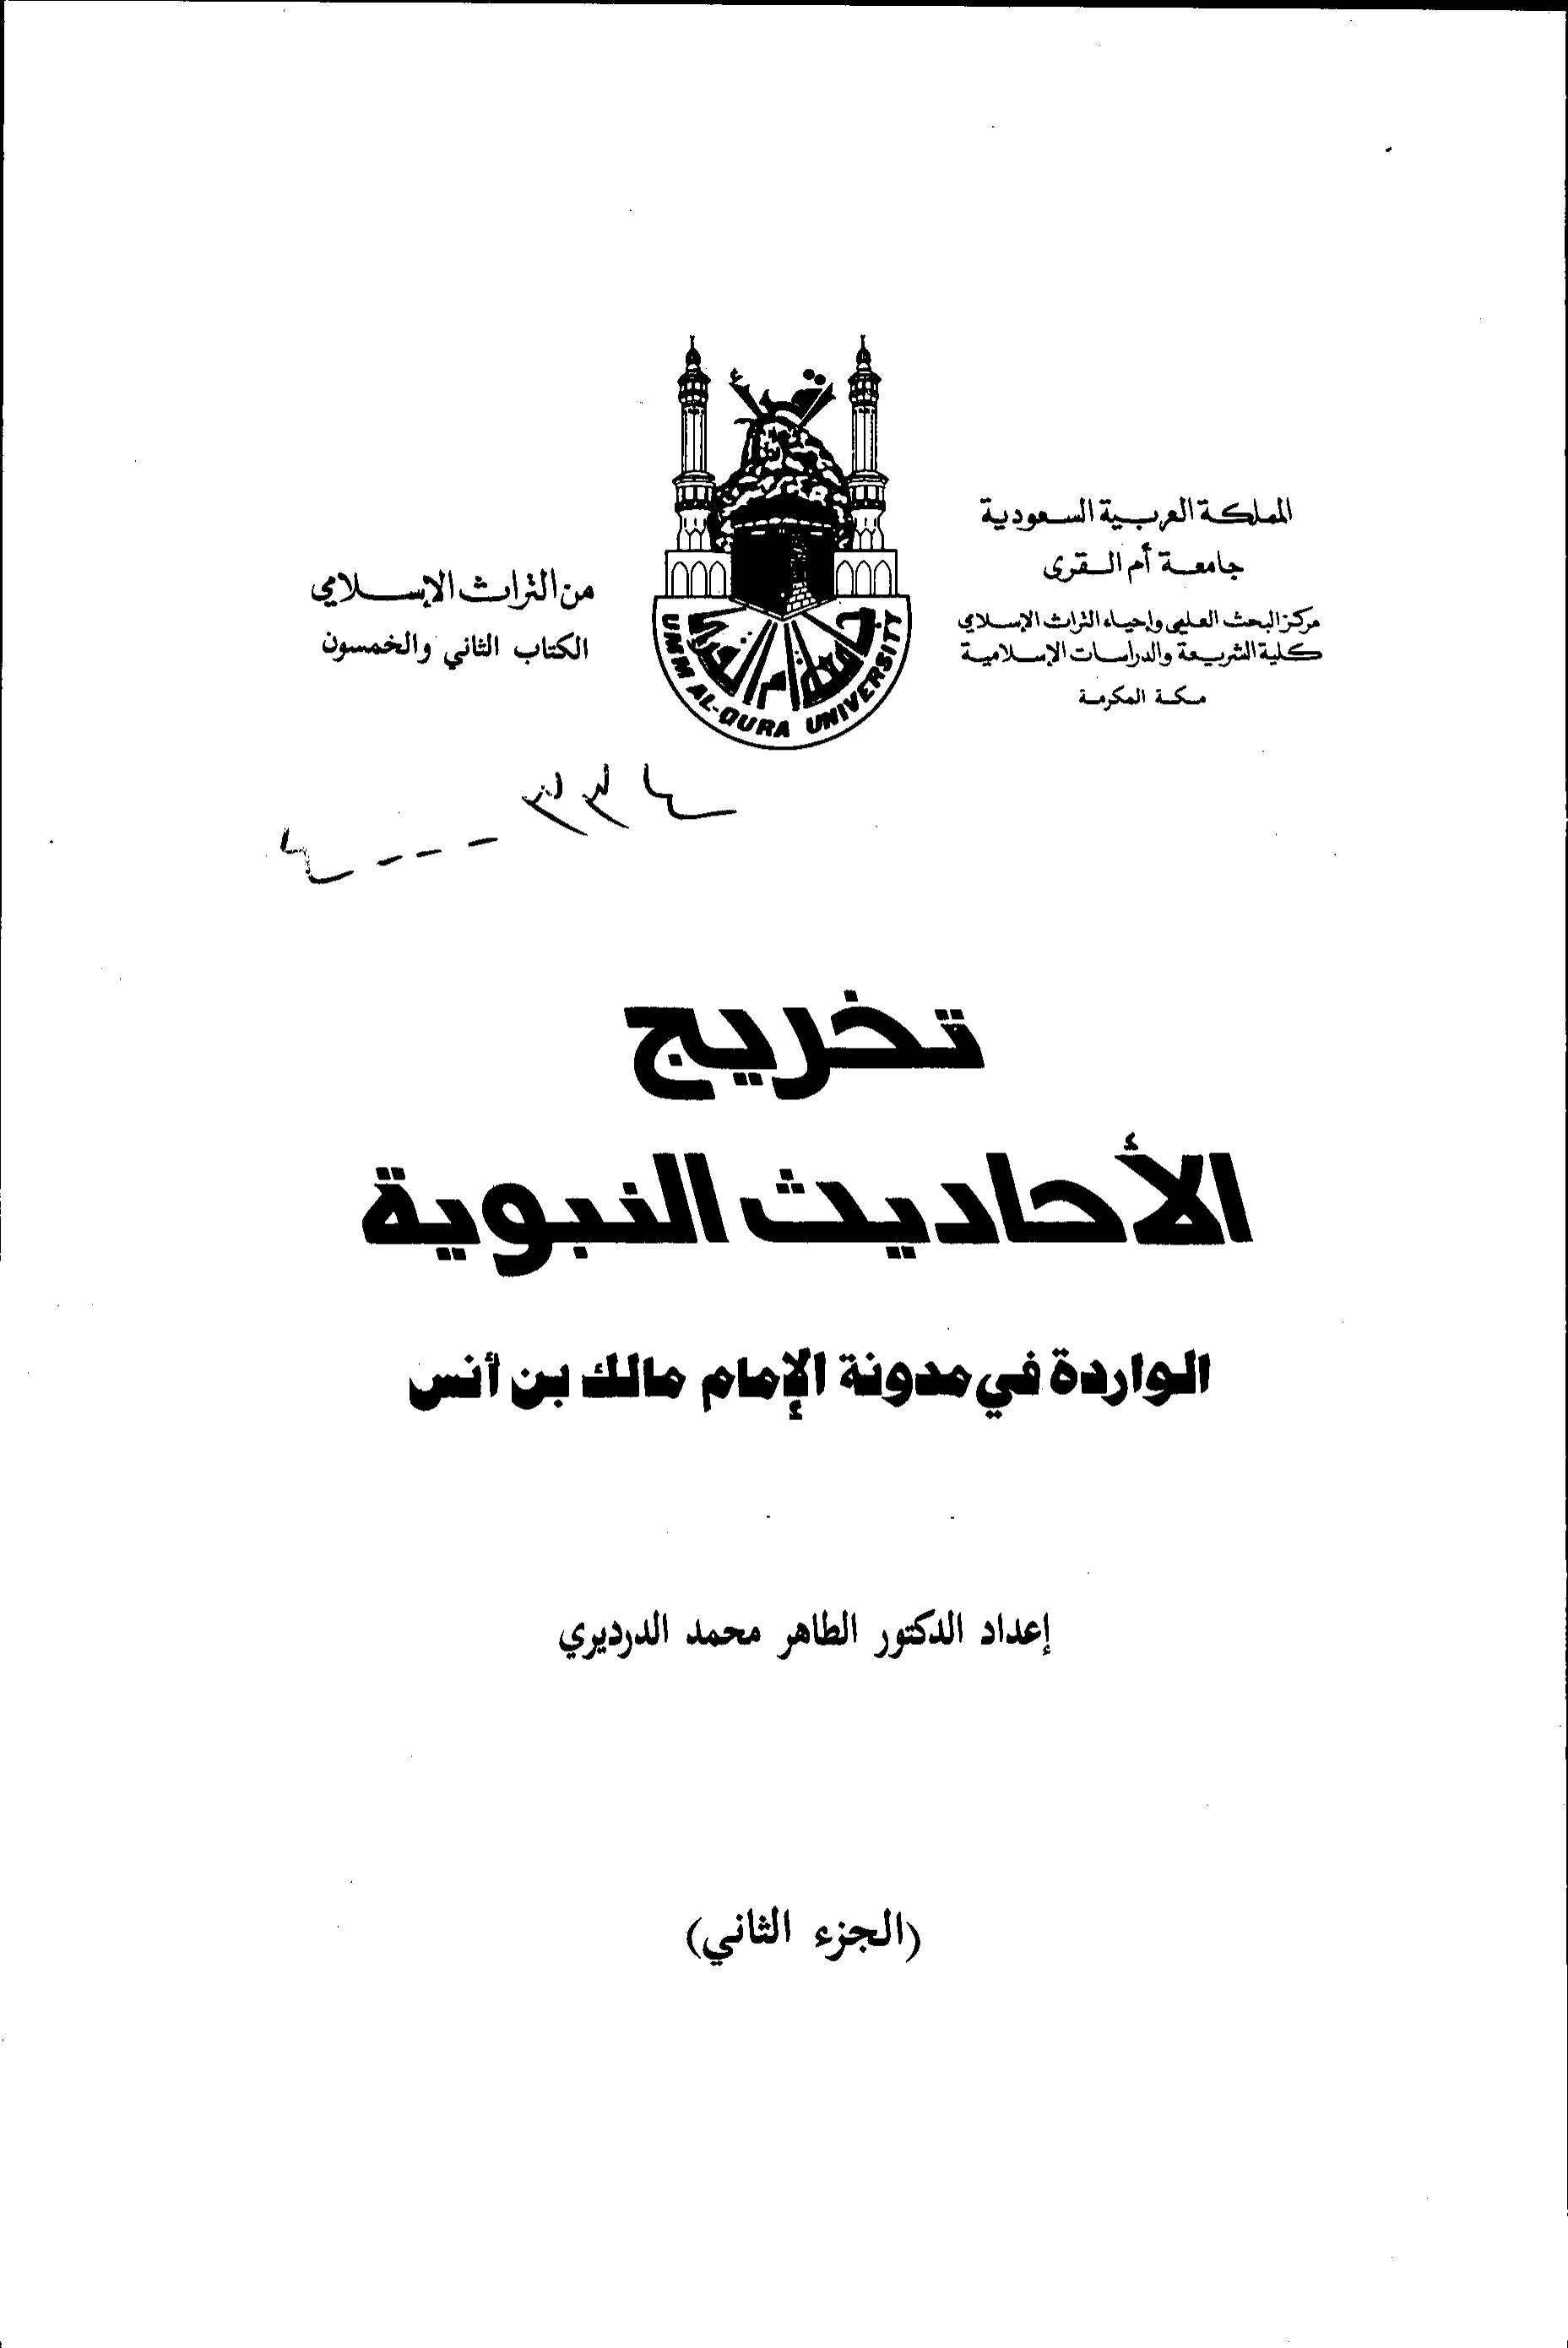 المملكة العربية السعودية
جامعة أم القرى
مركز البحث العلمي وإحياء التراث الإسلامي
كلية الشريعة والدراسات الإسلامية
مكة المكرمة
جامعة أم القرى
UMM AL-QURA UNIVERSITY
من التراث الإسلامي
الكتاب الثاني والخمسون
تخريج
الأحاديث النبوية
الواردة في مدونة الإمام مالك بن أنس
إعداد الدكتور الطاهر محمد الدرديري
(الجزء الثاني)